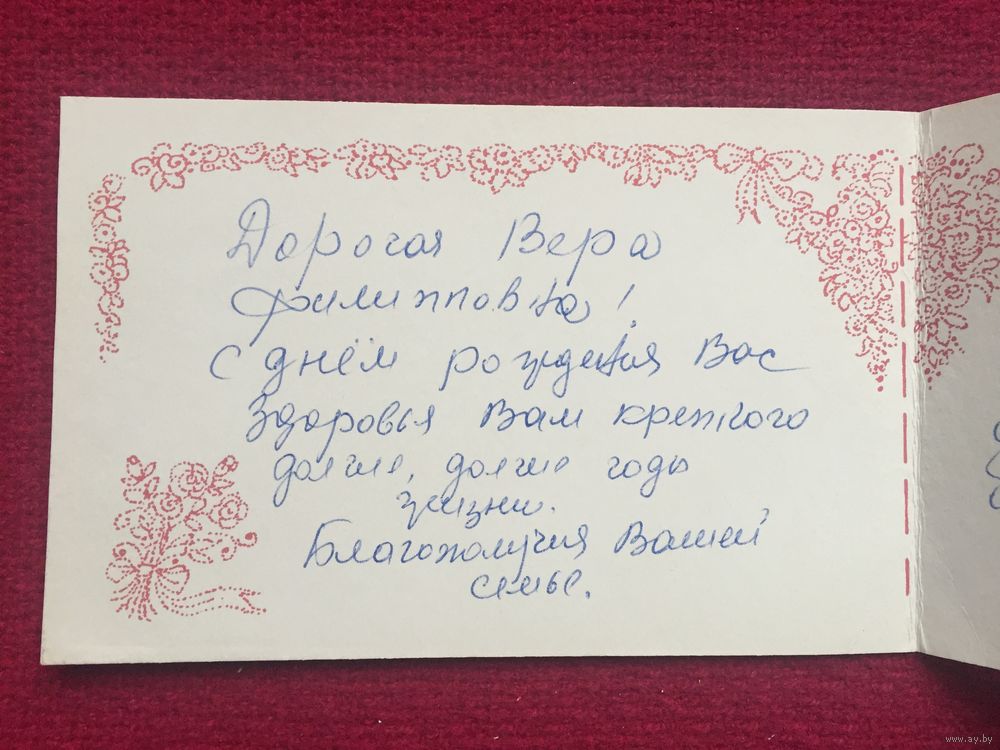 Дорогая Вера
Филипповна!
С днём рождения Вас
Здоровья Вам крепкого
долгие, долгие годы
жизни.
Благополучия Вашей
семье.
www.ay.by